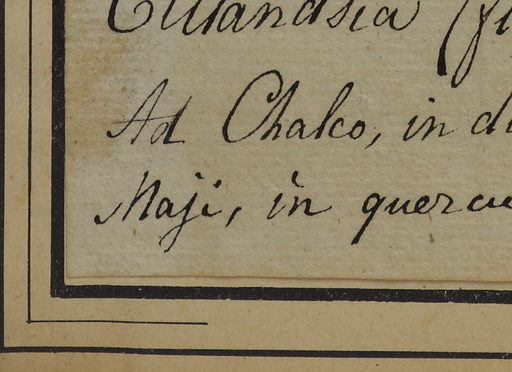 Tillandsia
Ad Chalco, in
Maji, in